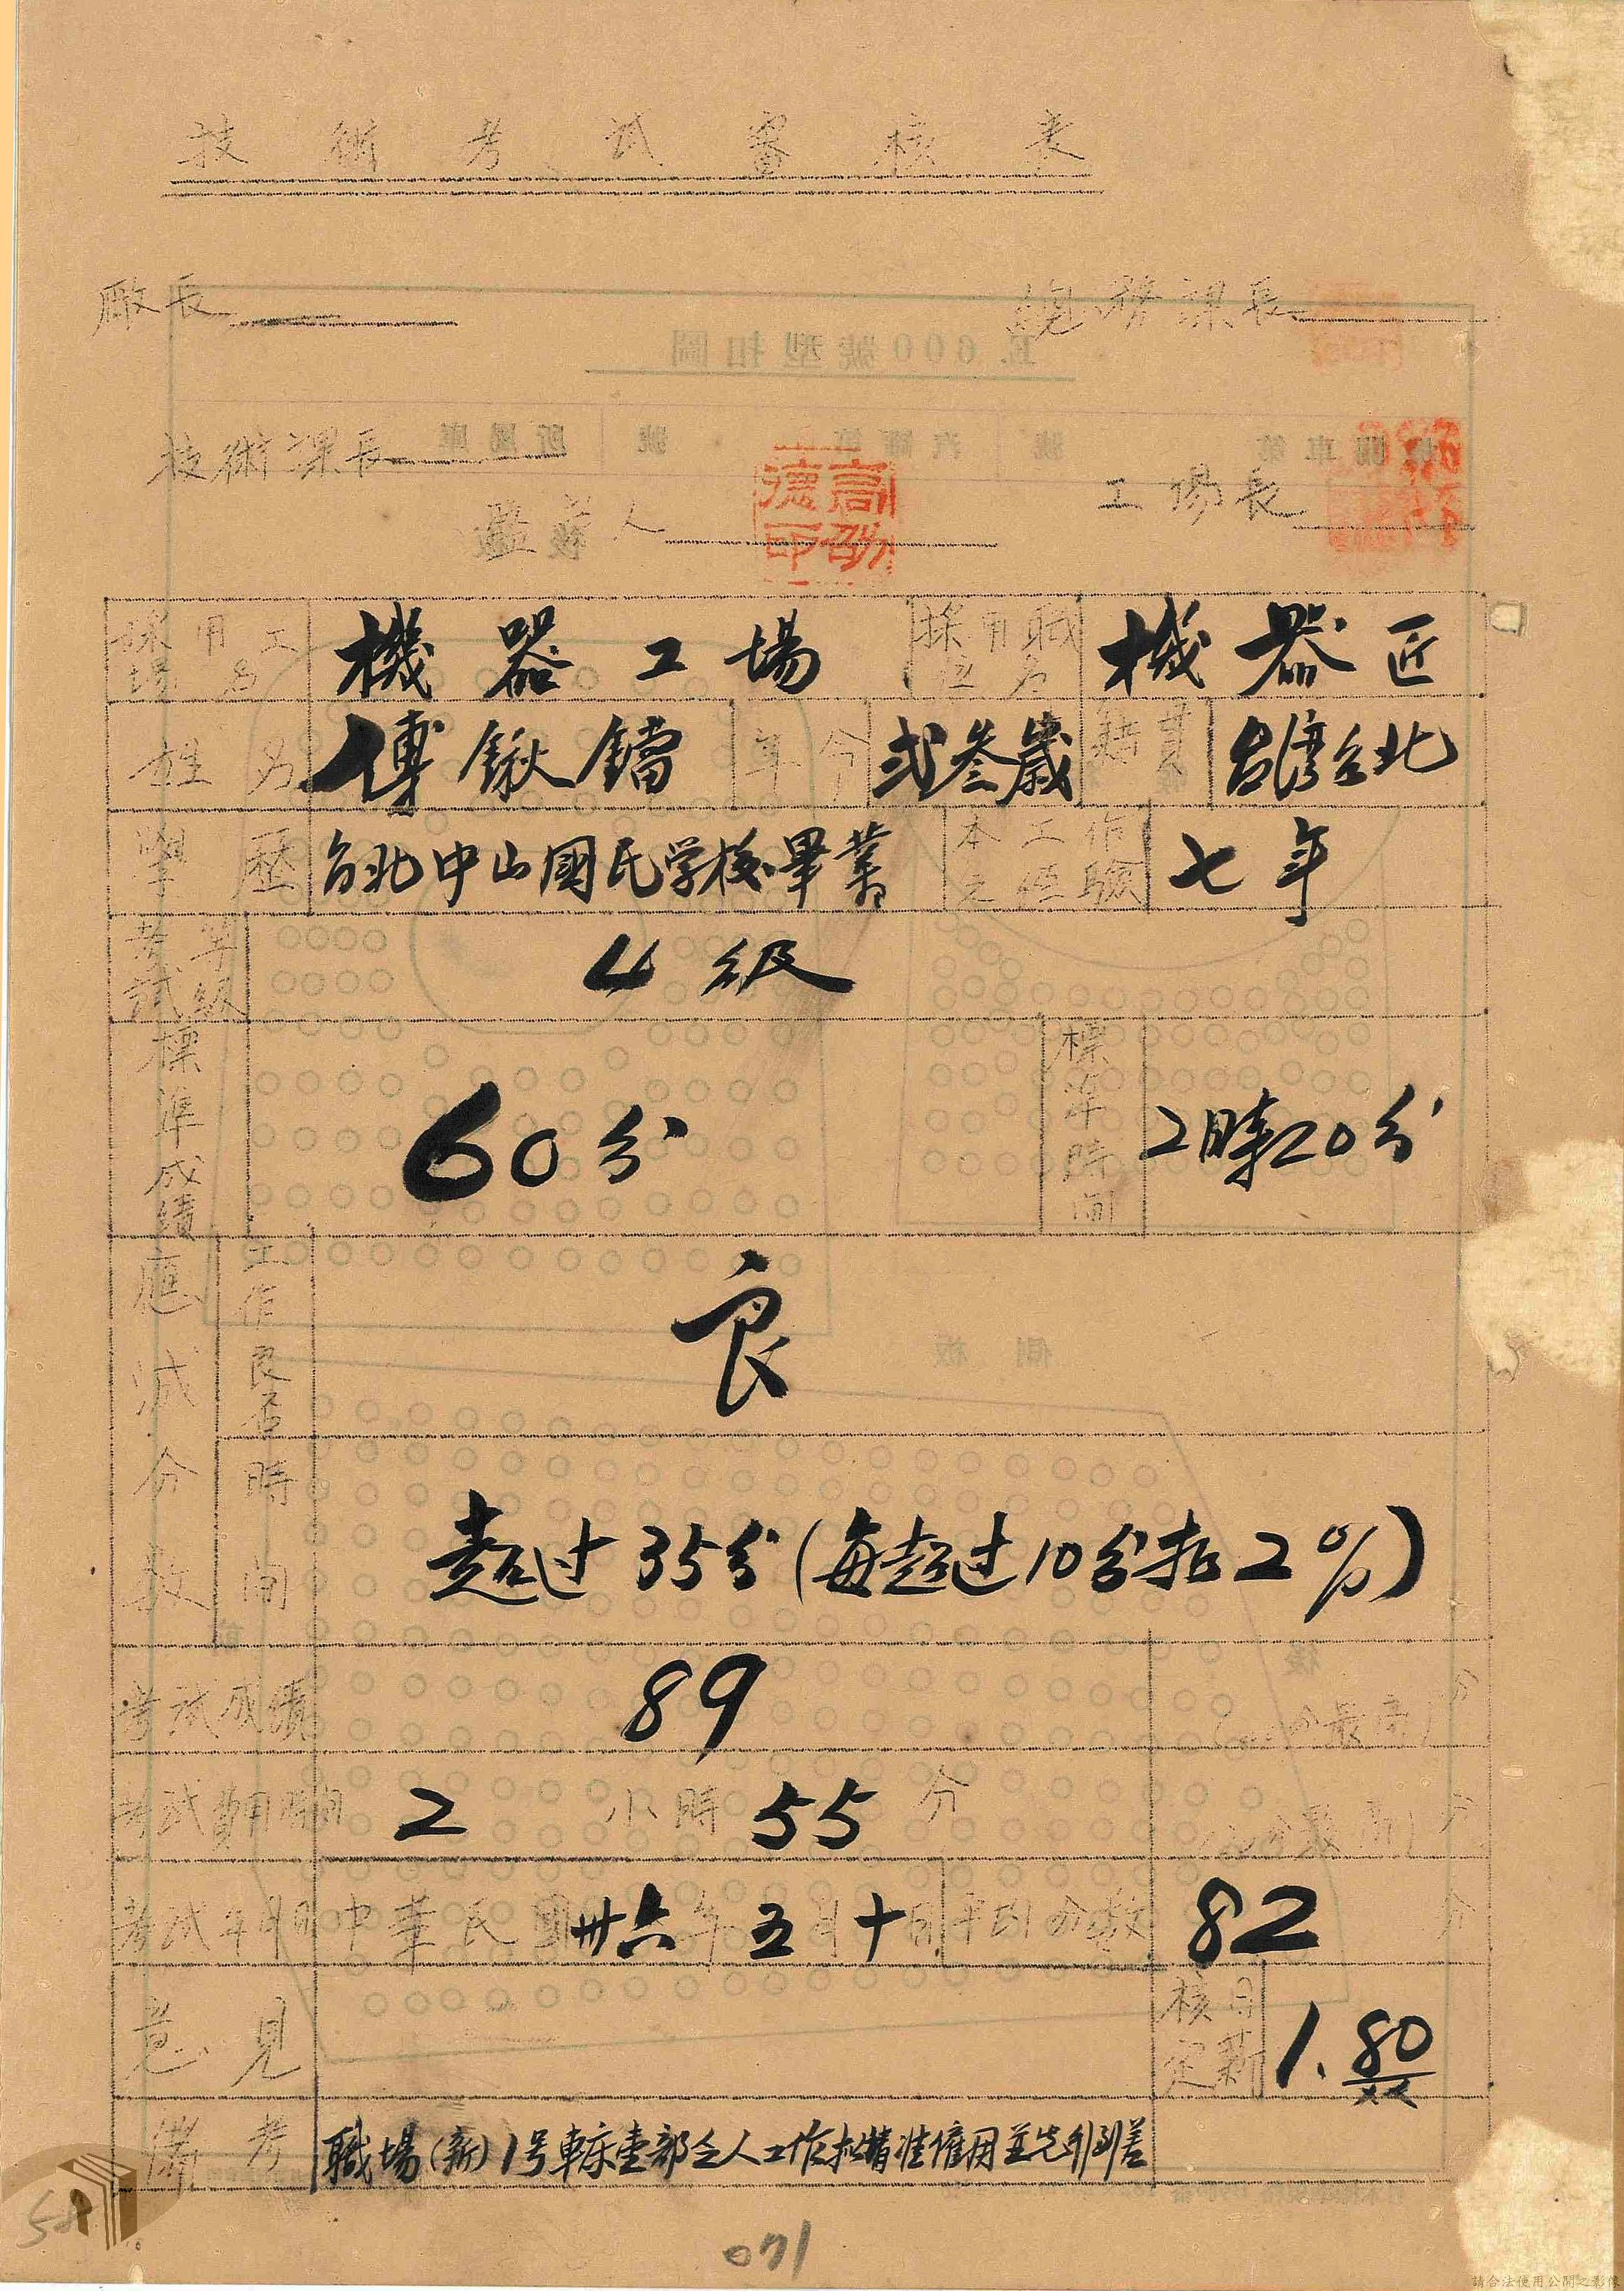 技術考試審核表
廠長
總務課長
E.600號型扣圖
技術課長
工場長
監護人
高砂德印
採用工場名 機器工場 採用職位名 機器匠
姓名 傅鍬鐺 年令 弍叁歲 籍貫 台湾台北
學歷 台北中山國民学校畢業 本工作之經驗 七年
考試等級 4級
標準成績 60分 標準時間 2時20分
應減分數 工作良否 良
時間 超过35分(每超过10分扣2%)
側板
後
考試成績 89 (100分最高)分
考試費用時間 2小時55分 分
考試年月日 中華民國卅六年五月十日 平均分數 82分
意見 核定日薪 1.80
備考 職場(新)1号車床壹部乏人工作
071
58
請合法使用公開之影像